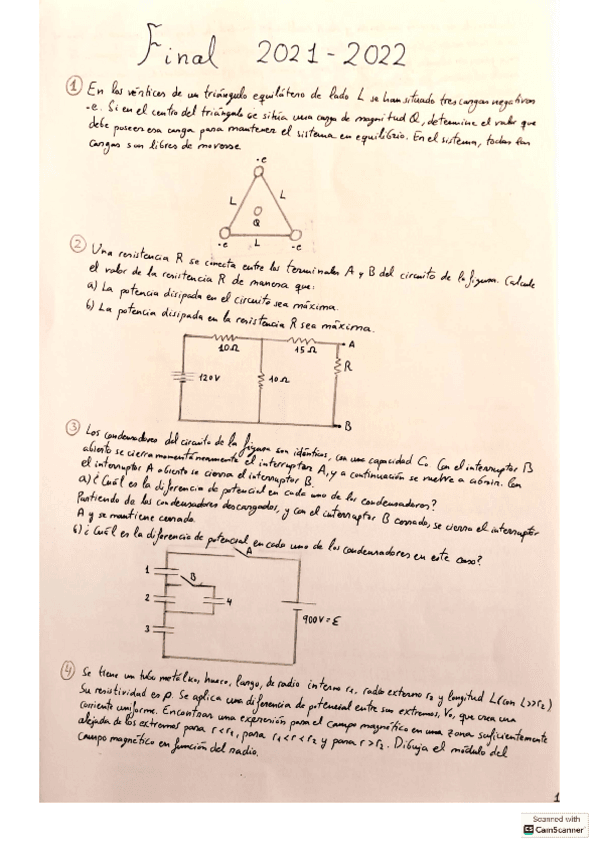 Final 2021-2022
① En los vértices de un triángulo equilátero de lado L se han situado tres cargas negativas
-e. Si en el centro del triángulo se sitúa una carga de magnitud Q, determine el valor que
debe poseer esa carga para mantener el sistema en equilibrio. En el sistema, todas las
cargas son libres de moverse
-e
L
L
Q
-e
L
-e
② Una resistencia R se conecta entre los terminales A y B del circuito de la figura. Calcule
el valor de la resistencia R de manera que:
a) La potencia disipada en el circuito sea máxima.
b) La potencia disipada en la resistencia R sea máxima.
10Ω
15Ω
A
R
120V
10Ω
B
③ Los condensadores del circuito de la figura son idénticos, con una capacidad C₀. Con el interruptor B
abierto se cierra momentáneamente el interruptor A, y a continuación se vuelve a abrir. Con
el interruptor A abierto se cierra el interruptor B.
a) ¿Cuál es la diferencia de potencial en cada uno de los condensadores?
Partiendo de los condensadores descargados, y con el interruptor B cerrado, se cierra el interruptor
A y se mantiene cerrado.
b) ¿Cuál es la diferencia de potencial en cada uno de los condensadores en este caso?
A
1
B
2
4
900V=ε
3
④ Se tiene un tubo metálico, hueco, largo, de radio interno r₁, radio externo r₂ y longitud L (con L>>r₂)
Su resistividad es ρ. Se aplica una diferencia de potencial entre sus extremos, V₀, que crea una
corriente uniforme. Encontrar una expresión para el campo magnético en una zona suficientemente
alejada de los extremos para r<r₁, para r₁<r<r₂ y para r>r₂. Dibuja el módulo del
campo magnético en función del radio.
1
Scanned with
CS CamScanner